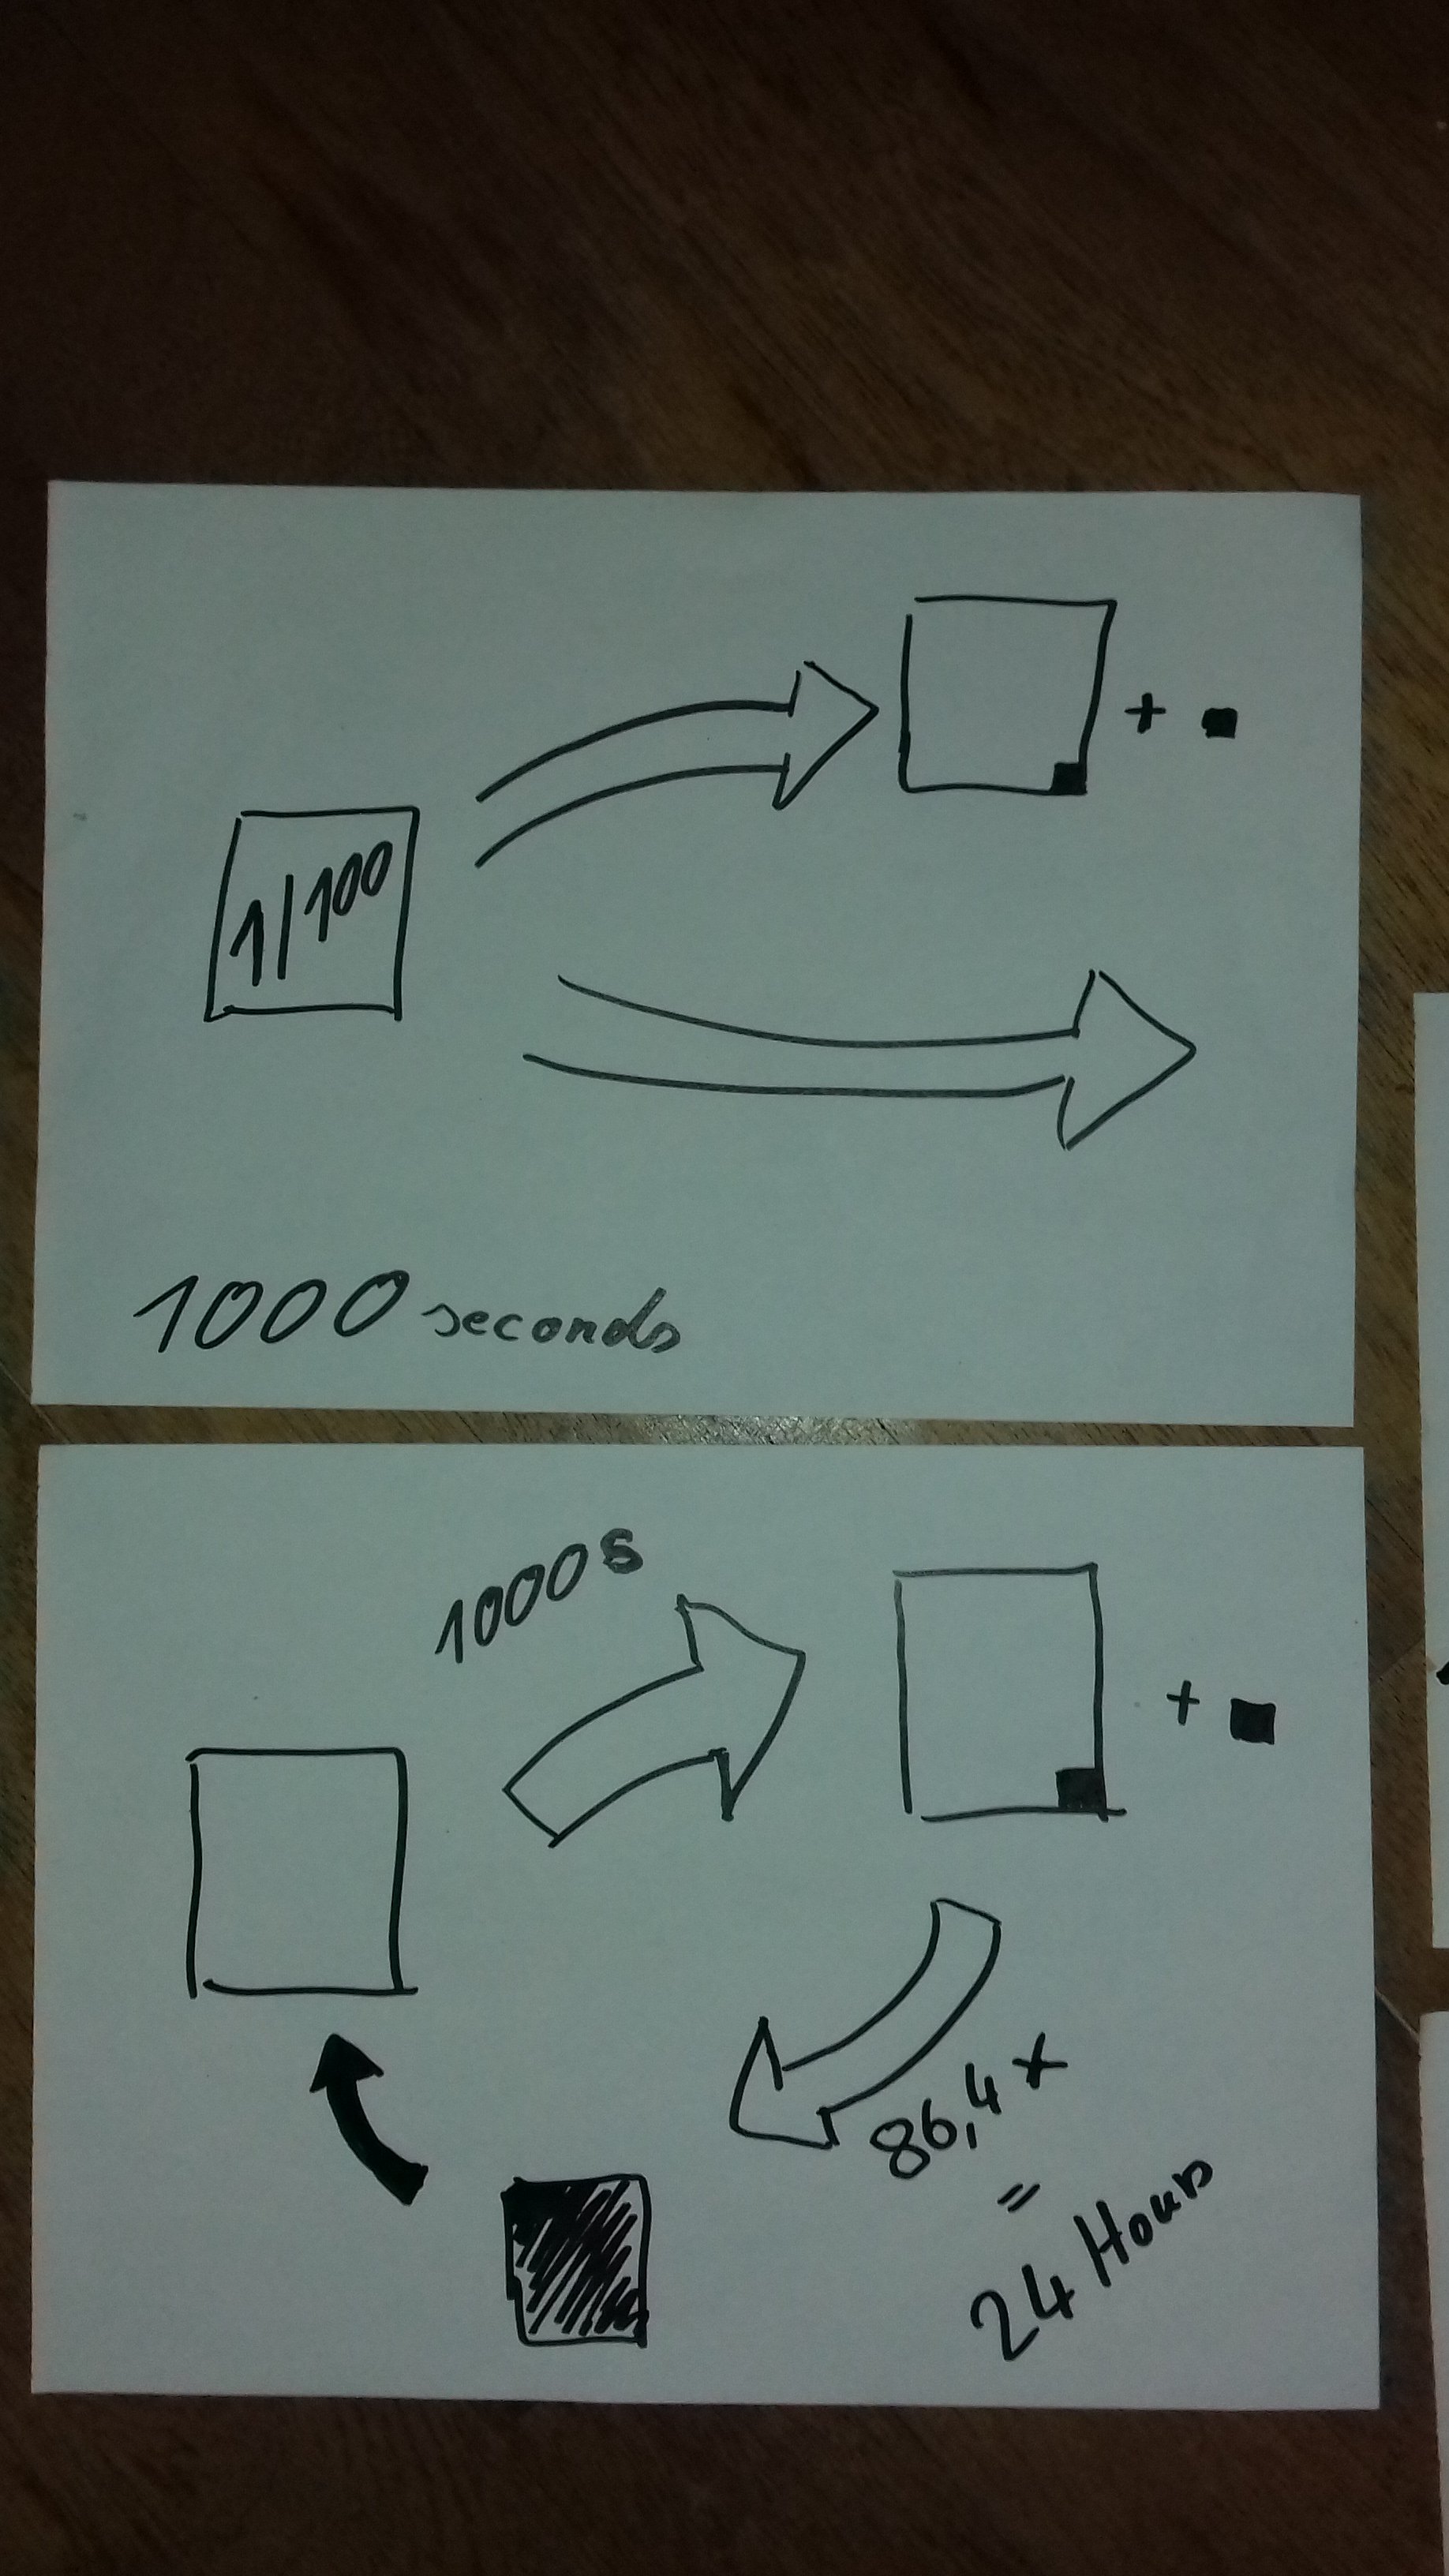 1/100
+
1000 seconds
1000s
+
86,4 x
=
24 Hours